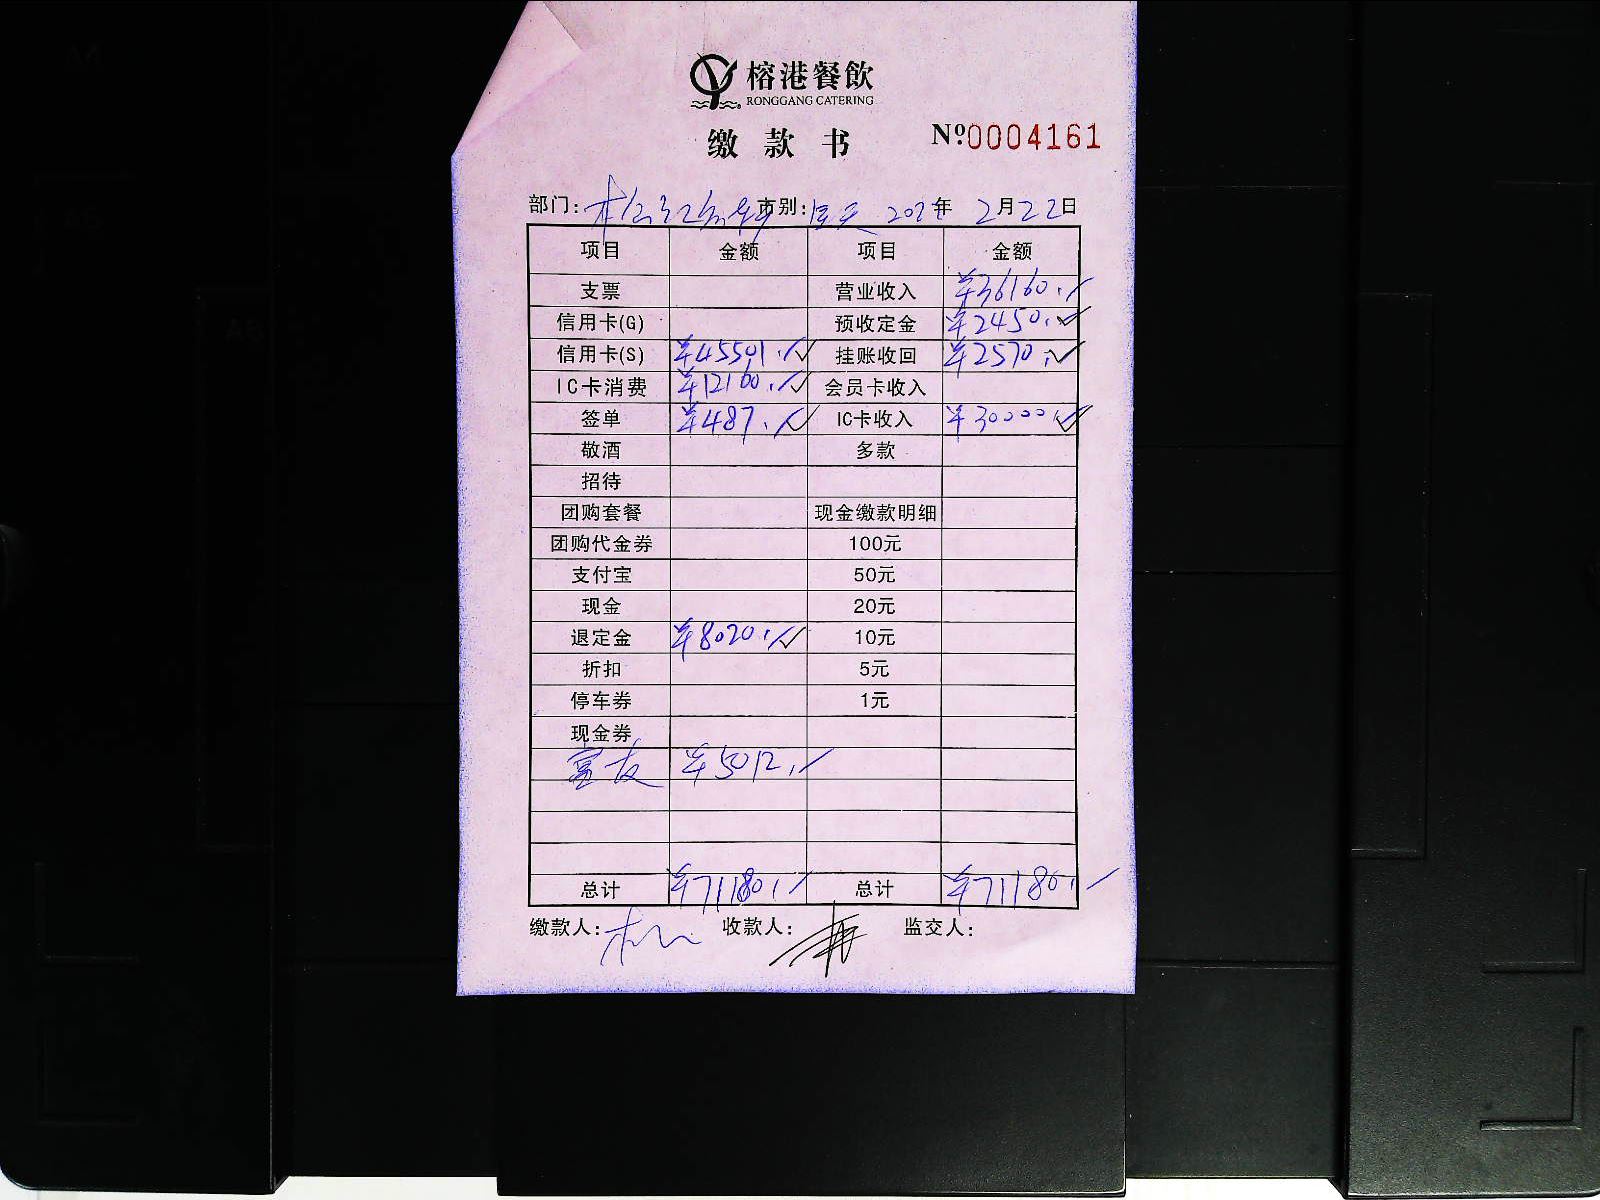 榕港餐飲
RONGGANG CATERING
缴款书
Nº0004161
部门: 市别: 全天 年 2月22日
项目 金额 项目 金额
支票 营业收入 ¥36160.
信用卡(G) 预收定金 ¥2450.
信用卡(S) ¥45501. 挂账收回 ¥2570.
IC卡消费 ¥12160. 会员卡收入
签单 ¥487. IC卡收入 ¥30000.
敬酒 多款
招待
团购套餐 现金缴款明细
团购代金券 100元
支付宝 50元
现金 20元
退定金 ¥8020. 10元
折扣 5元
停车券 1元
现金券
富友 ¥5012.
总计 ¥71180. 总计 ¥71180.
缴款人: 收款人: 监交人: